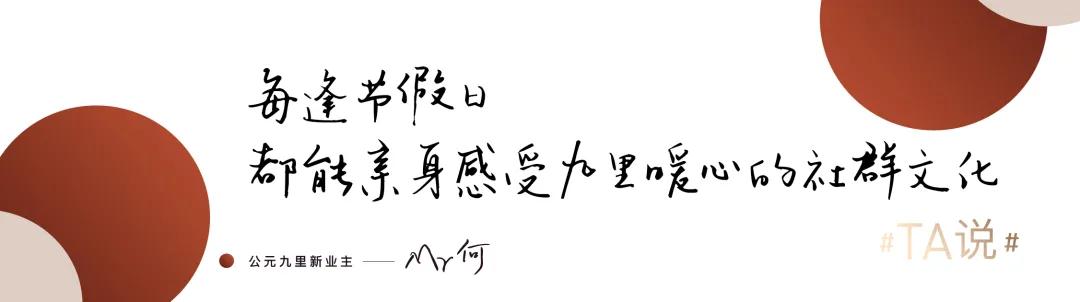 每逢节假日
都能亲身感受九里暖心的社群文化
#TA说#
公元九里新业主 —— Mr何